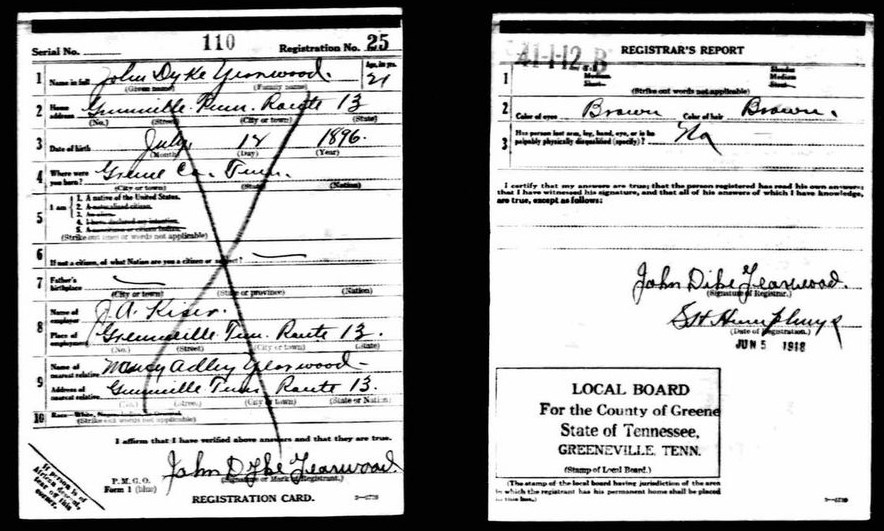 Serial No. 110 Registration No. 25
1 Name in full John Dyke Yearwood. Age, in yrs. 21
(Given name) (Family name)
2 Home address Greenville Tenn. Route 13
(No.) (Street) (City or town) (State)
3 Date of birth July 12 1896.
(Month) (Day) (Year)
4 Where were you born? Greene Co. Tenn.
(City or town) (State) (Nation)
5 I am
1. A native of the United States.
2. A naturalized citizen.
3. An alien.
4. I have declared my intention.
5.
(Strike out lines or words not applicable)
6 If not a citizen, of what Nation are you a citizen or subject?
7 Father's birthplace
(City or town) (State or province) (Nation)
8 Name of employer J. A. Kiser.
Place of employment Greenville Tenn. Route 13.
(No.) (Street) (City or town) (State)
9 Name of nearest relative Nancy Adley Yearwood
Address of nearest relative Greenville Tenn. Route 13.
(No.) (Street) (City or town) (State or Nation)
10 Race— White,
(Strike out words not applicable)
I affirm that I have verified above answers and that they are true.
P. M. G. O.
Form 1 (blue)
John Dyke Yearwood
(Signature or Mark of Registrant.)
REGISTRATION CARD.
If person is of
African descent,
tear off this
corner.
41-1-12. B
REGISTRAR'S REPORT
1 Medium Short Slender Medium Stout
(Strike out words not applicable)
2 Color of eyes Brown Color of hair Brown.
3 Has person lost arm, leg, hand, eye, or is he palpably physically disqualified (specify)? No
I certify that my answers are true; that the person registered has read his own answers;
that I have witnessed his signature, and that all of his answers of which I have knowledge,
are true, except as follows:
John Dike Yearwood.
(Signature of Registrar.)
S H Humphreys
(Date of Registration.)
JUN 5 1918
LOCAL BOARD
For the County of Greene
State of Tennessee,
GREENEVILLE, TENN.
(Stamp of Local Board.)
(The stamp of the local board having jurisdiction of the area
in which the registrant has his permanent home shall be placed
in this box.)